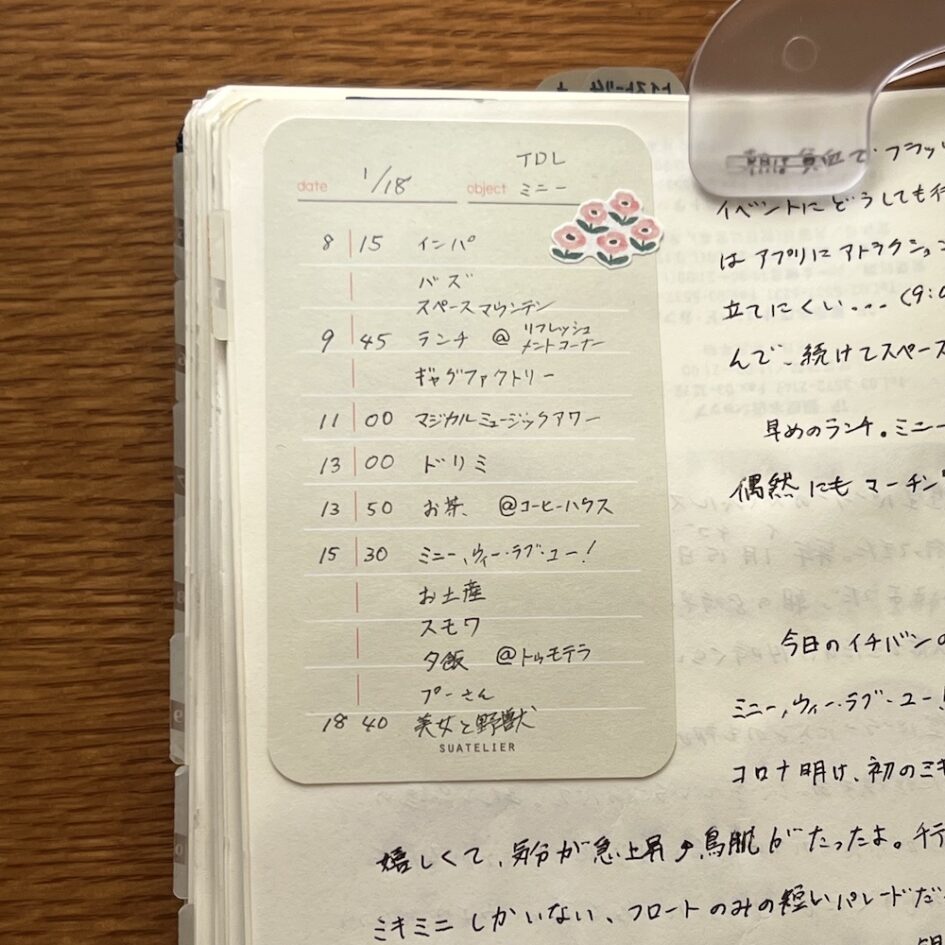 date 1/18 object TDL ミニー
8 15 インパ
バズ
スペースマウンテン
9 45 ランチ @ リフレッシュ
メントコーナー
ギャグファクトリー
11 00 マジカルミュージックアワー
13 00 ドリミ
13 50 お茶、 @コーヒーハウス
15 30 ミニー、ウィー・ラブ・ユー!
お土産
スモワ
夕飯 @トゥモテラ
プーさん
18 40 美女と野獣
SUATELIER
朝は貧血で、フラッ
イベントにどうしても行
はアプリにアトラクション
立てにくい...(9:0
んで、続けてスペース
早めのランチ。ミニー
偶然にもマーチン
今日のイチバンの
ミニー、ウィー・ラブ・ユー!
コロナ明け、初のミキ
嬉しくて、気分が急上昇↗鳥肌がたったよ。
ミキミニしかいない、フロートのみの短いパレードだ